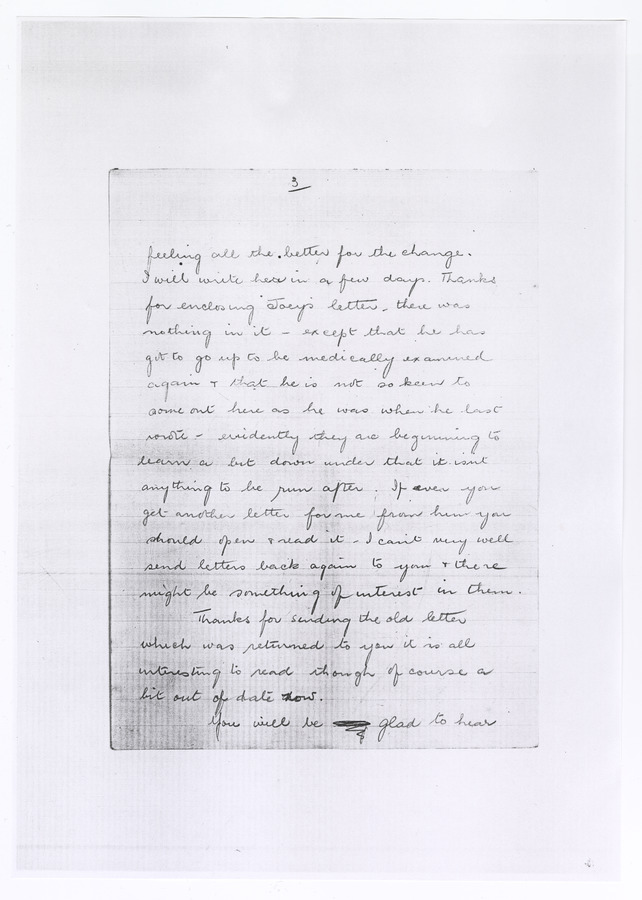 3
feeling all the better for the change.
I will write here in a few days. Thanks
for enclosing Joey's letter, there was
nothing in it - except that he has
got to go up to be medically examined
again & that he is not so keen to
come out here as he was when he last
wrote - evidently they are beginning to
learn a bit down under that it isnt
anything to be run after. If ever you
get another letter for me from him you
should open & read it - I can't very well
send letters back again to you & there
might be something of interest in them.
Thanks for sending the old letter
which was returned to you it is all
interesting to read though of course a
bit out of date now.
You will be glad to hear